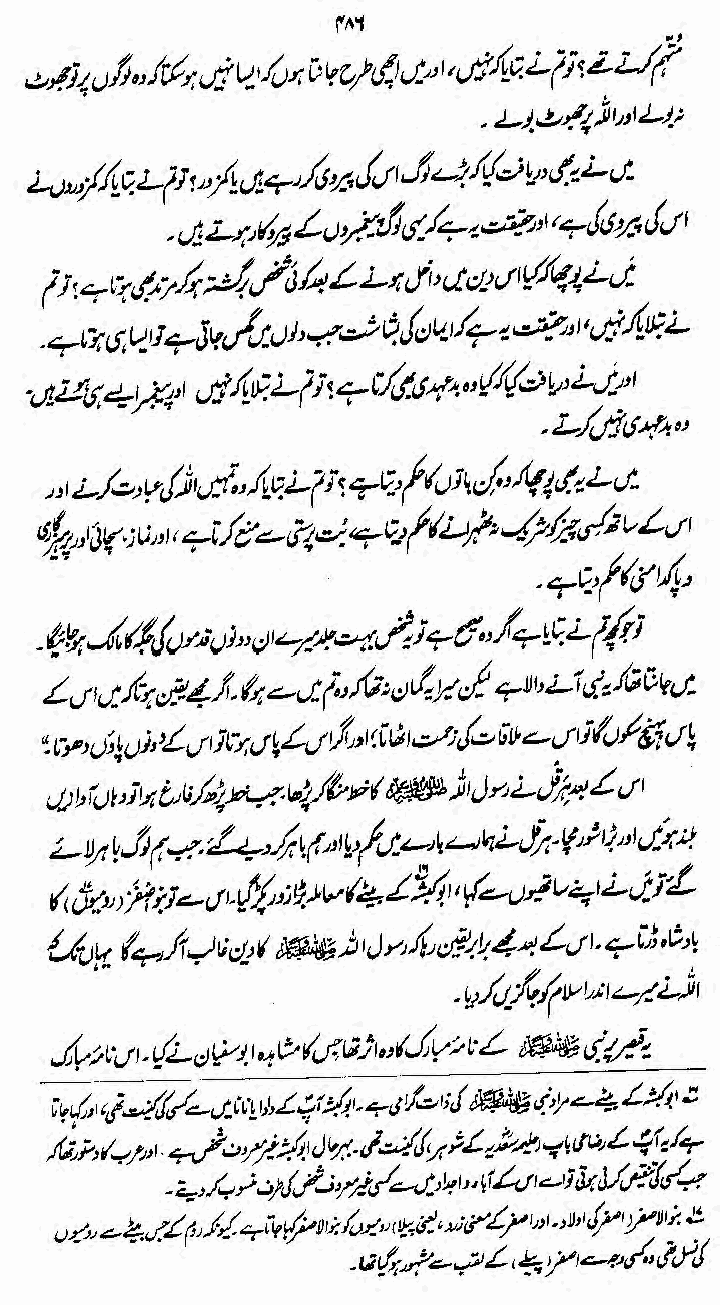 ۴۸۶
متّہم کرتے تھے؟ تو تم نے بتایا کہ نہیں، اور میں اچھی طرح جانتا ہوں کہ ایسا نہیں ہو سکتا کہ وہ لوگوں پر تو جھوٹ
نہ بولے اور اللہ پر جھوٹ بولے۔
میں نے یہ بھی دریافت کیا کہ بڑے لوگ اس کی پیروی کر رہے ہیں یا کمزور؟ تو تم نے بتایا کہ کمزوروں نے
اس کی پیروی کی ہے، اور حقیقت یہ ہے کہ یہی لوگ پیغمبروں کے پیروکار ہوتے ہیں۔
میں نے پوچھا کہ کیا اس دین میں داخل ہونے کے بعد کوئی شخص برگشتہ ہو کر مرتد بھی ہوتا ہے؟ تو تم
نے بتلایا کہ نہیں، اور حقیقت یہ ہے کہ ایمان کی بشاشت جب دلوں میں گھس جاتی ہے تو ایسا ہی ہوتا ہے۔
اور میں نے دریافت کیا کہ کیا وہ بدعہدی بھی کرتا ہے؟ تو تم نے بتلایا کہ نہیں اور پیغمبر ایسے ہی ہوتے ہیں۔
وہ بدعہدی نہیں کرتے۔
میں نے یہ بھی پوچھا کہ وہ کن باتوں کا حکم دیتا ہے؟ تو تم نے بتایا کہ وہ تمہیں اللہ کی عبادت کرنے اور
اس کے ساتھ کسی چیز کو شریک نہ ٹھہرانے کا حکم دیتا ہے، بُت پرستی سے منع کرتا ہے، اور نماز، سچائی اور پرہیزگاری
و پاکدامنی کا حکم دیتا ہے۔
تو جو کچھ تم نے بتایا ہے اگر وہ صحیح ہے تو یہ شخص بہت جلد میرے ان دونوں قدموں کی جگہ کا مالک ہو جائیگا۔
میں جانتا تھا کہ یہ نبی آنے والا ہے لیکن میرا یہ گمان نہ تھا کہ وہ تم میں سے ہوگا۔ اگر مجھے یقین ہوتا کہ میں اس کے
پاس پہنچ سکوں گا تو اس سے ملاقات کی زحمت اٹھاتا؛ اور اگر اس کے پاس ہوتا تو اس کے دونوں پاؤں دھوتا۔"
اس کے بعد ہرقل نے رسول اللہ ﷺ کا خط منگا کر پڑھا۔ جب خط پڑھ کر فارغ ہوا تو وہاں آوازیں
بلند ہوئیں اور بڑا شور مچا۔ ہرقل نے ہمارے بارے میں حکم دیا اور ہم باہر کر دیے گئے۔ جب ہم لوگ باہر لائے
گئے تو میں نے اپنے ساتھیوں سے کہا، ابوکبشہ کے بیٹے کا معاملہ بڑا زور پکڑ گیا۔ اس سے تو بنو اصفر (رومیوں) کا
بادشاہ ڈرتا ہے۔ اس کے بعد مجھے برابر یقین رہا کہ رسول اللہ ﷺ کا دین غالب آ کر رہے گا یہاں تک کہ
اللہ نے میرے اندر اسلام کو جاگزیں کر دیا۔
یہ قیصر پر نبی ﷺ کے نامۂ مبارک کا وہ اثر تھا جس کا مشاہدہ ابوسفیان نے کیا۔ اس نامۂ مبارک
ابوکبشہ کے بیٹے سے مراد نبی ﷺ کی ذات گرامی ہے۔ ابوکبشہ آپؐ کے دادا یا نانا میں سے کسی کی کنیت تھی، اور کہا جاتا
ہے کہ یہ آپؐ کے رضاعی باپ (حلیمہ سعدیہ کے شوہر) کی کنیت تھی۔ بہرحال ابوکبشہ غیر معروف شخص ہے۔ اور عرب کا دستور تھا کہ
جب کسی کی تنقیص کرنی ہوتی تو اسے اس کے آباء و اجداد میں سے کسی غیر معروف شخص کی طرف منسوب کر دیتے۔
بنو الاصفر (اصفر کی اولاد۔ اور اصفر کے معنی زرد، یعنی پیلا) رومیوں کو بنو الاصفر کہا جاتا ہے۔ کیونکہ روم کے جس بیٹے سے رومیوں
کی نسل تھی وہ کسی وجہ سے اصفر (پیلے) کے لقب سے مشہور ہو گیا تھا۔